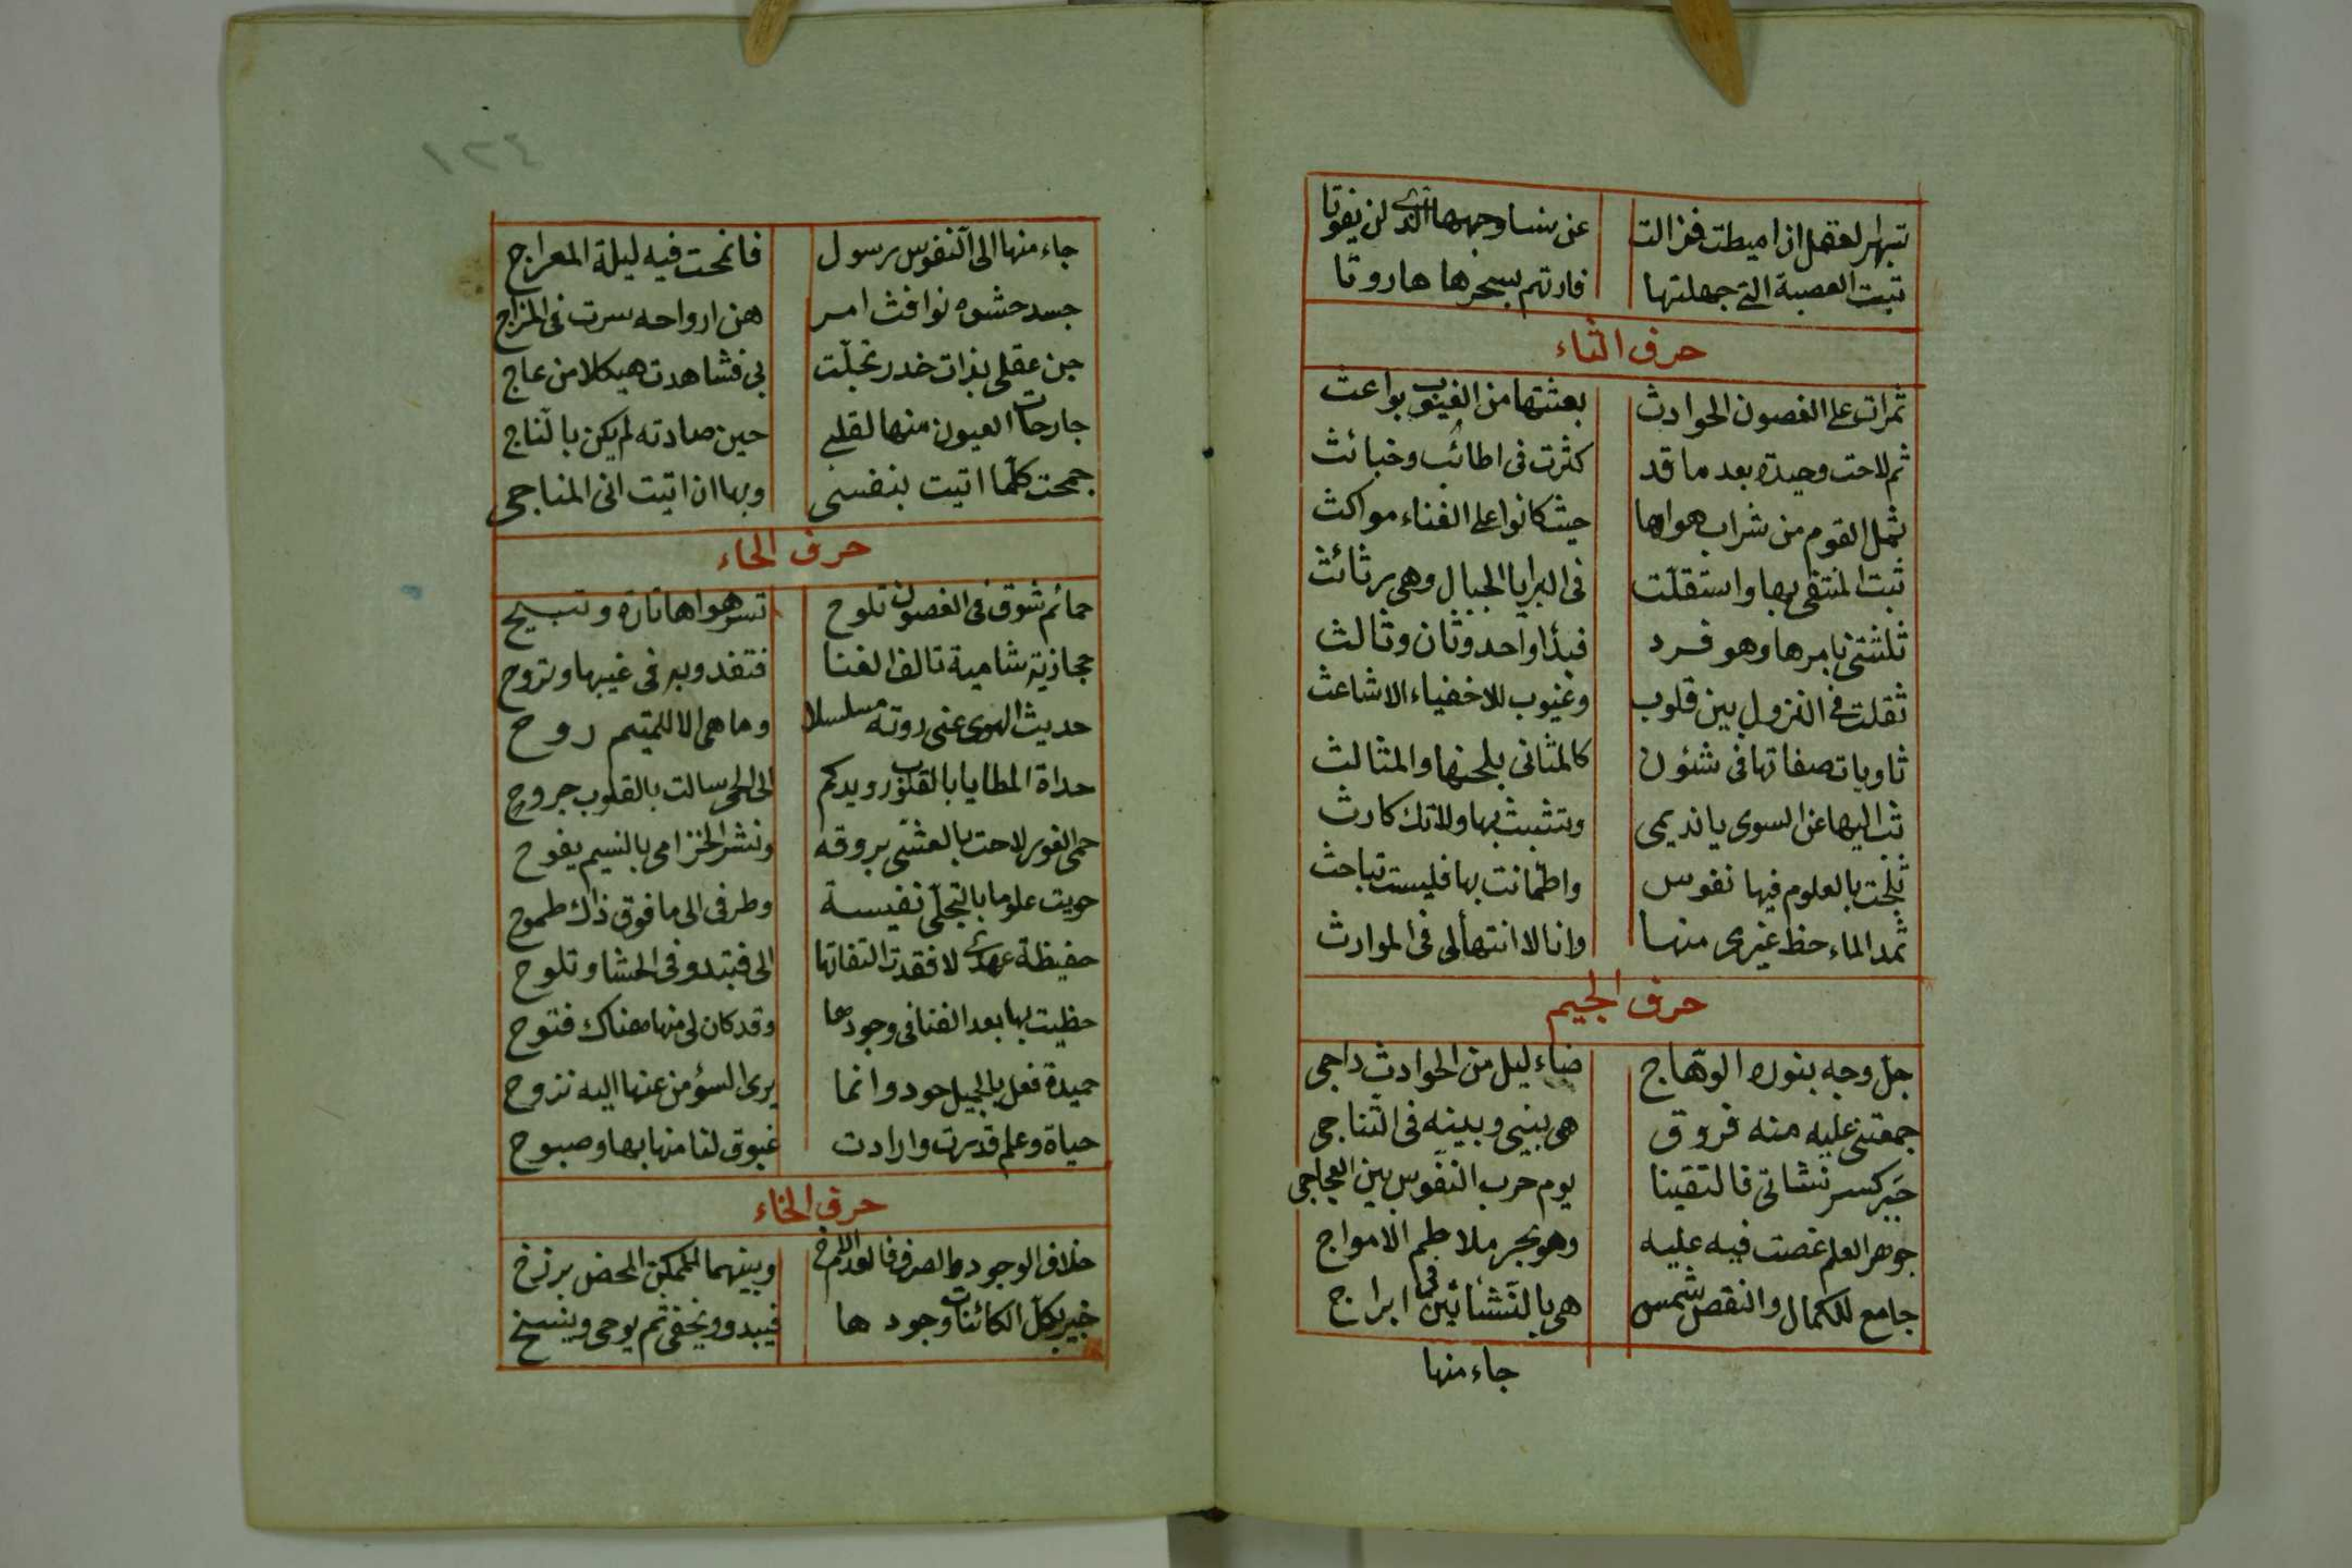 تبهر العقل ان اميطت فزالت عن سنا وجهها الذى لن يفوتا
تبت العصبة التى جهلتها فارتهم بسحرها هاروتا
حرف الثاء
ثمرات على الغصون الحوادث بعثتها من الغيوب بواعث
ثم لاحت وحيدة بعد ما قد كثرت فى اطائب وخبائث
ثمل القوم من شراب هواها حيث كانوا على الفناء مواكث
ثبت المنتقى بها واستقلت فى البرايا الجبال وهى رثائث
ثلثتنى بامرها وهو فرد فبدا واحد وثان وثالث
ثقلت فى النزول بين قلوب وغيوب للاخفياء الاشاعث
ثاويات صفاتها فى شئون كالمثانى بلحنها والمثالث
ثب اليها عن السوى يا نديمى وتشبث بها ولا تك كارث
ثلجت بالعلوم فيها نفوس واطمانت بها فليست تباحث
ثمد الماء حظ غيرى منها وانا لا انتها لى فى الموارث
حرف الجيم
جل وجه بنوره الوهاج ضاء ليل من الحوادث داجى
جمعتنى عليه منه فروق هى بينى وبينه فى التناجى
جبر كسر نشاتى فالتقينا يوم حرب النفوس بين العجاجى
جوهر العلم غصت فيه عليه وهو بحر ملاطم الامواج
جامع للكمال والنقص شمس هى بالنشأتين فى ابراج
جاء منها
١٢٤
جاء منها الى النفوس رسول فانمحت فيه ليلة المعراج
جسد حشوه نوافث امر هن ارواحه سرت فى المزاج
جن عقلى بذات خدر تجلت بى فشاهدت هيكلا من عاج
جارحات العيون منها لقلبى حين صادته لم يكن بالناج
جمحت كلما اتيت بنفسى وبها ان اتيت انى المناجى
حرف الحاء
حمائم شوق فى الغصون تلوح تسر هواها تارة وتبيح
حجازية شامية تالف الفنا فتغدو به فى غيبها وتروح
حديث الهوى عنى روته مسلسلا وما هى الا للمتيم روح
حداة المطايا بالقلوب رويدكم الى الحى سالت بالقلوب جروح
حمى الغور لاحت بالعشى بروقه ونشر الخزامى بالنسيم يفوح
حويت علوما بالتجلى نفيسة وطرفى الى ما فوق ذاك طموح
حفيظة عهدى لا فقدت التفاتها الى فتبدو فى الحشا وتلوح
حظيت بها بعد الفنا فى وجودها وقد كان لى منها هناك فتوح
حميدة فعل بالجميل جود وانما يرى السؤ من عنها اليه نزوح
حياة وعلم قدرت وارادت غبوق لنا منها بها وصبوح
حرف الخاء
خلاف الوجود الصرف فالعدم وبينهما للممكن المحض برزخ
خبير بكل الكائنات وجودها فيبدو ويخفى ثم يوحى وينسخ